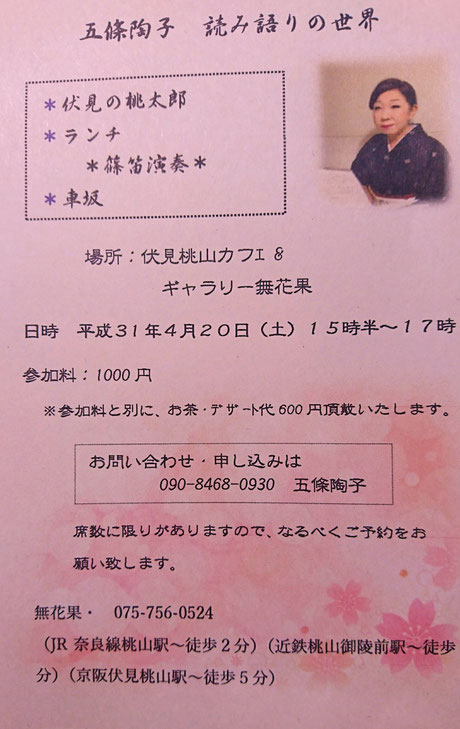 五條陶子 読み語りの世界
＊伏見の桃太郎
＊ランチ
＊篠笛演奏＊
＊車坂
場所：伏見桃山カフェ &
ギャラリー無花果
日時 平成３１年４月２０日（土）１５時半～１７時
参加料：1000 円
※参加料と別に、お茶・デザート代 600 円頂戴いたします。
お問い合わせ・申し込みは
090-8468-0930 五條陶子
席数に限りがありますので、なるべくご予約をお
願い致します。
無花果・ 075-756-0524
（JR 奈良線桃山駅～徒歩２分）（近鉄桃山御陵前駅～徒歩
分）（京阪伏見桃山駅～徒歩５分）